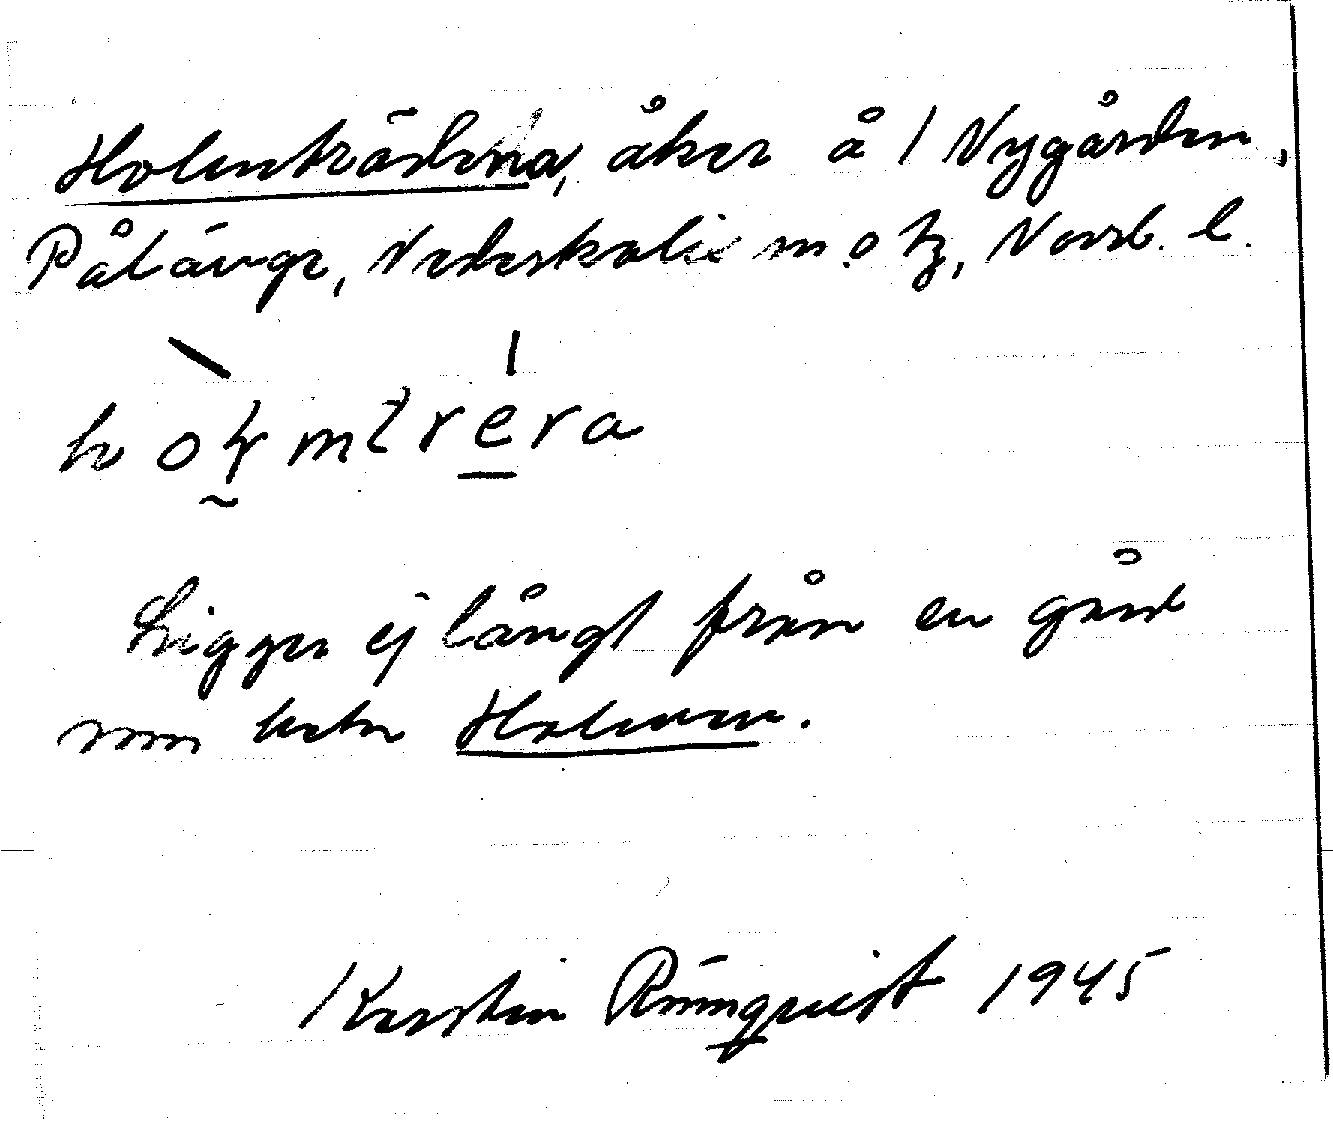 Holmträdena, åker å 1 Nygården,
Pålänge, Nederkalix sn o tg, Norrb. l.
hoɽmtrera
Ligger ej långt från en gård
som heter Holmen.
Kerstin Rönnqvist 1945